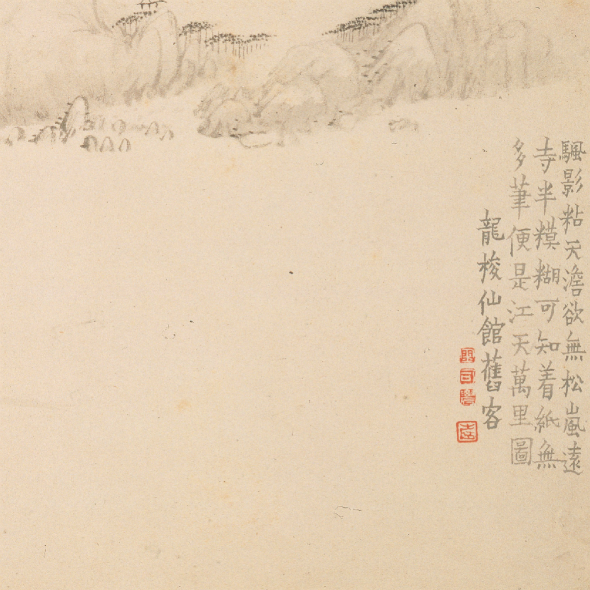 颿影粘天澹欲無松嵐遠
寺半糢糊可知着紙無
多筆便是江天萬里圖
龍梭仙館舊客